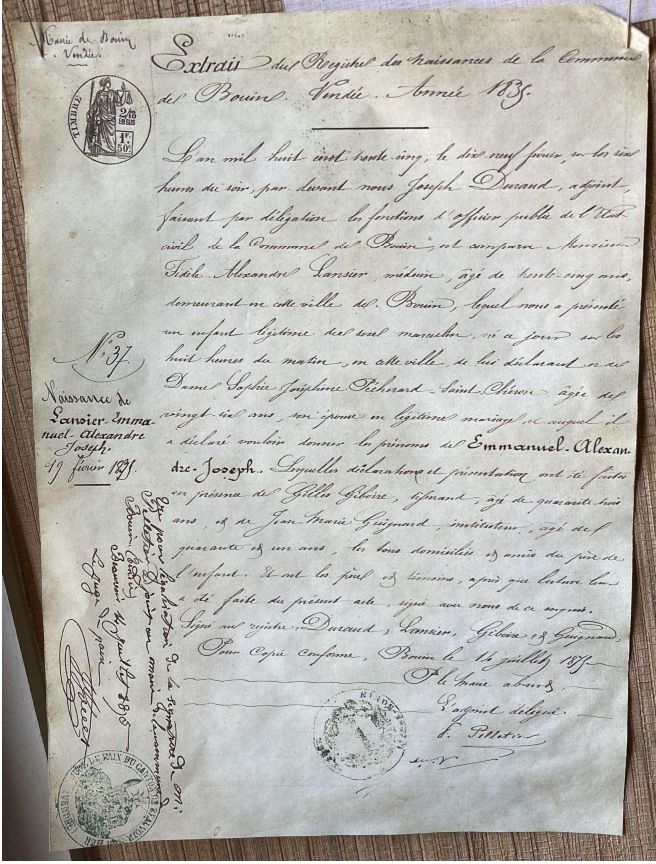 Mairie de Bouin
Vendée.
TIMBRE
2/10
EN SUS
1F.
50c.
Extrait du Registre des naissances de la Commune
de Bouin. Vendée. Année 1835.
L'an mil huit cent trente cinq, le dix neuf février, sur les six
heures du soir, par devant nous Joseph Duraud, adjoint,
faisant par délégation les fonctions d'officier public de l'Etat
civil de la Commune de Bouin, est comparu Monsieur
Fidèle Alexandre Lansier, médecin, âgé de trente cinq ans,
demeurant en cette ville de Bouin, lequel nous a présenté
un enfant légitime du sexe masculin, né ce jour sur les
huit heures du matin, en cette ville, de lui déclarant et de
Dame Sophie Joséphine Saint-Chéron âgée de
vingt six ans, son épouse en légitime mariage et auquel il
a déclaré vouloir donner les prénoms de Emmanuel-Alexan-
dre-Joseph. Lesquelles déclaration et présentation ont été faites
en présence de Gilles Giboire, tisserand, âgé de quarante trois
ans, et de Jean Marie Guignard, instituteur, âgé de
quarante et un ans, les tous domiciliés et amis du père de
l'enfant. Et ont les père et témoins, après que lecture leur
a été faite du présent acte, signé avec nous de ce requis.
Signé au registre, Duraud, Lansier, Giboire et Guignard,
Pour Copie conforme, Bouin le 14 juillet 1875
P. le Maire absent,
L'adjoint délégué.
Pelletier
No. 37
Naissance de
Lansier-Emma-
nuel-Alexandre
Joseph.
19 février 1835.
Vu pour légalisation de la signature de Mr.
Pelletier adjoint au maire de la commune de
Bouin (Vendée)
Beauvoir 14 juillet 1875
Le juge de paix
DE PAIX DU CANTON DE BEAUVOIR